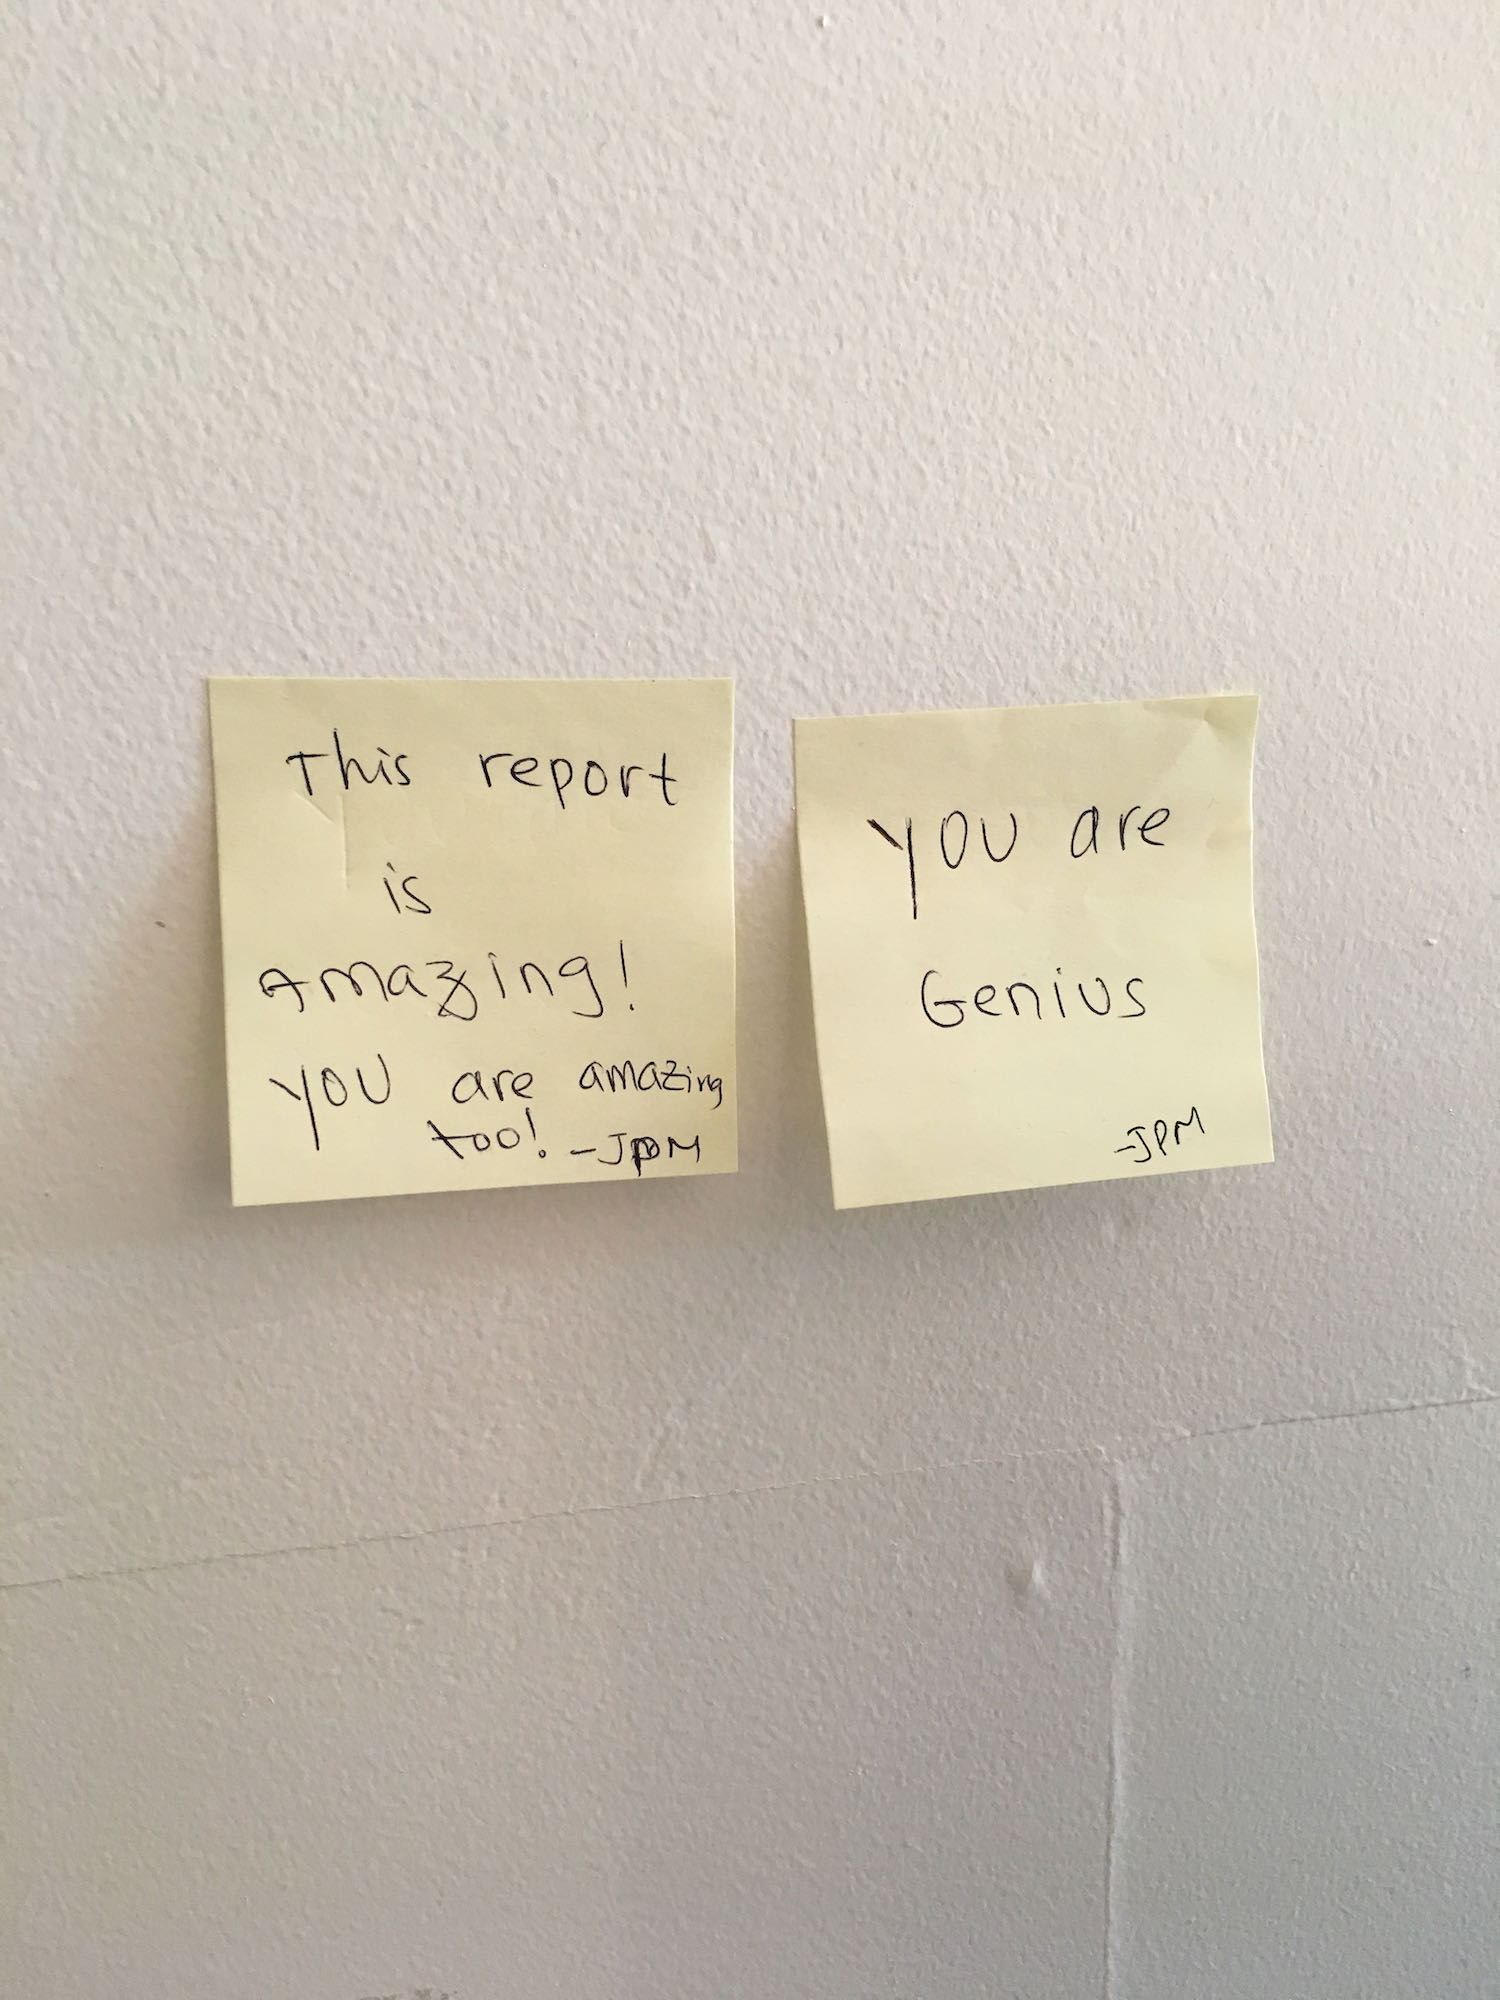 This report
is
Amazing!
you are amazing
too! -JPM
you are
Genius
-JPM